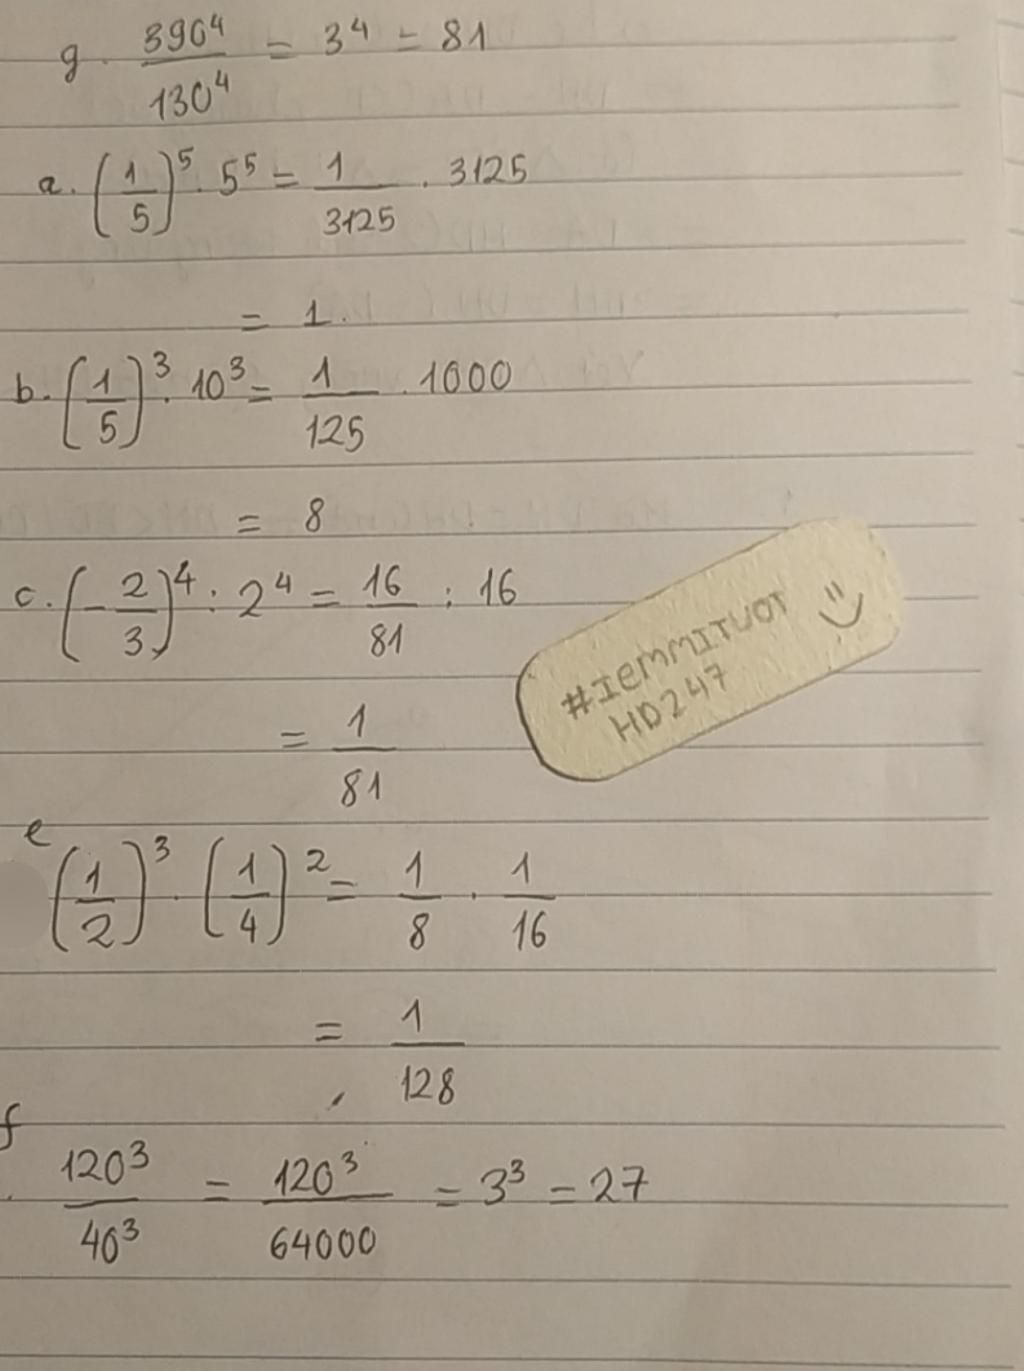 g. 390⁴/130⁴ = 3⁴ = 81
a. (1/5)⁵ . 5⁵ = 1/3125 . 3125
= 1.
b. (1/5)³ . 10³ = 1/125 . 1000
= 8
c. (-2/3)⁴ : 2⁴ = 16/81 : 16
= 1/81
#IEMMITUOT
HD247
e (1/2)³ . (1/4)² = 1/8 . 1/16
= 1/128
f. 120³/40³ = 120³/64000 = 3³ = 27